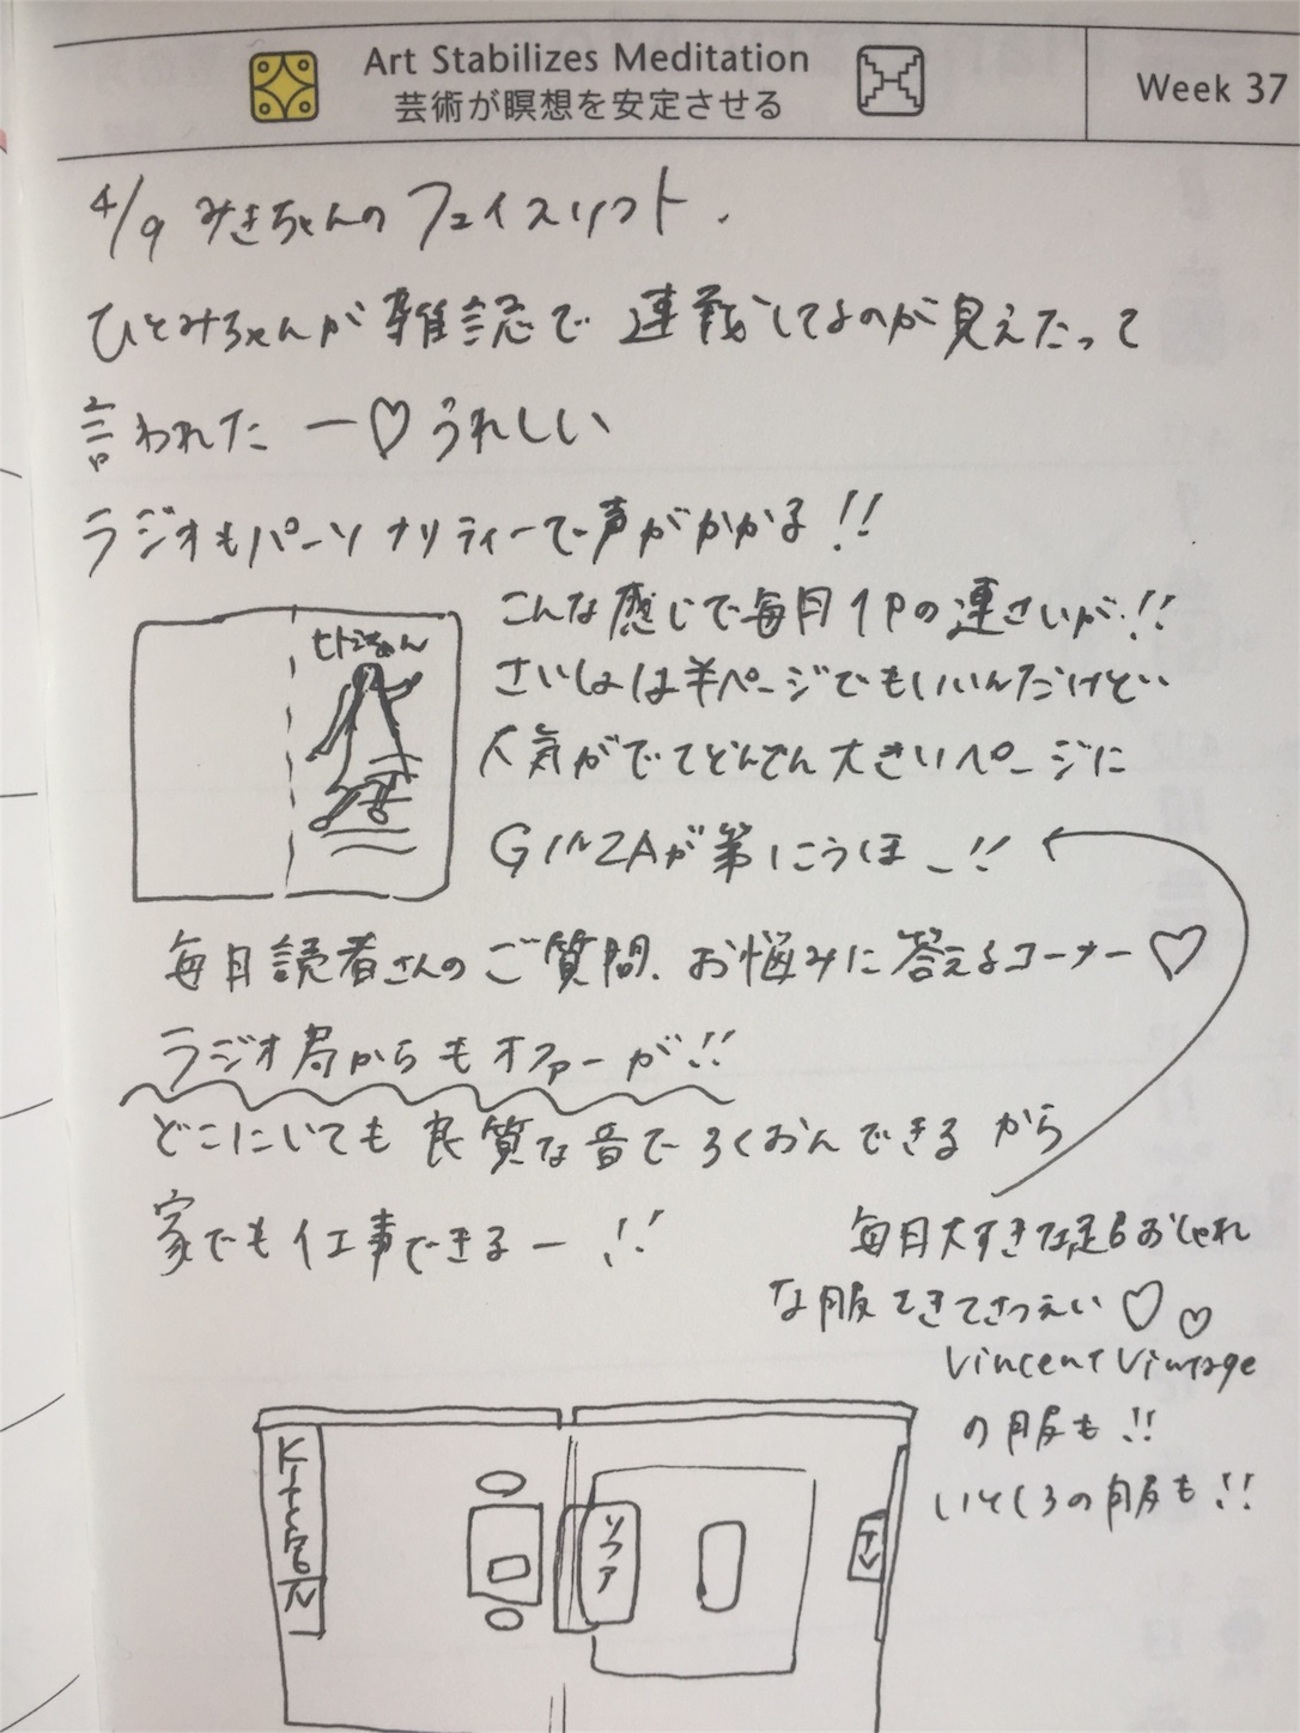 Art Stabilizes Meditation
芸術が瞑想を安定させる
Week 37
4/9 みきちゃんの フェイスリフト.
ひとみちゃんが雑誌で 連載してるのが見えたって
言われた ー♡うれしい
ラジオもパーソナリティーで声がかかる!!
こんな感じで毎月1Pの連さいが!!
さいしょは半ページでもいいんだけど…
人気がでてどんどん大きいページに
GINZAが第1こうほ_!!
ヒトミちゃん
毎月読者さんのご質問、お悩みに答えるコーナー♡
ラジオ局からもオファーが!!
どこにいても良質な音でろくおんできるから
家でも仕事できるー!!
毎月大すきなおしゃれ
な服をきてさつえい♡♡
Vincent Vintage
の服も!!
いとくろの服も!!
Kitchen
ソファ
TV